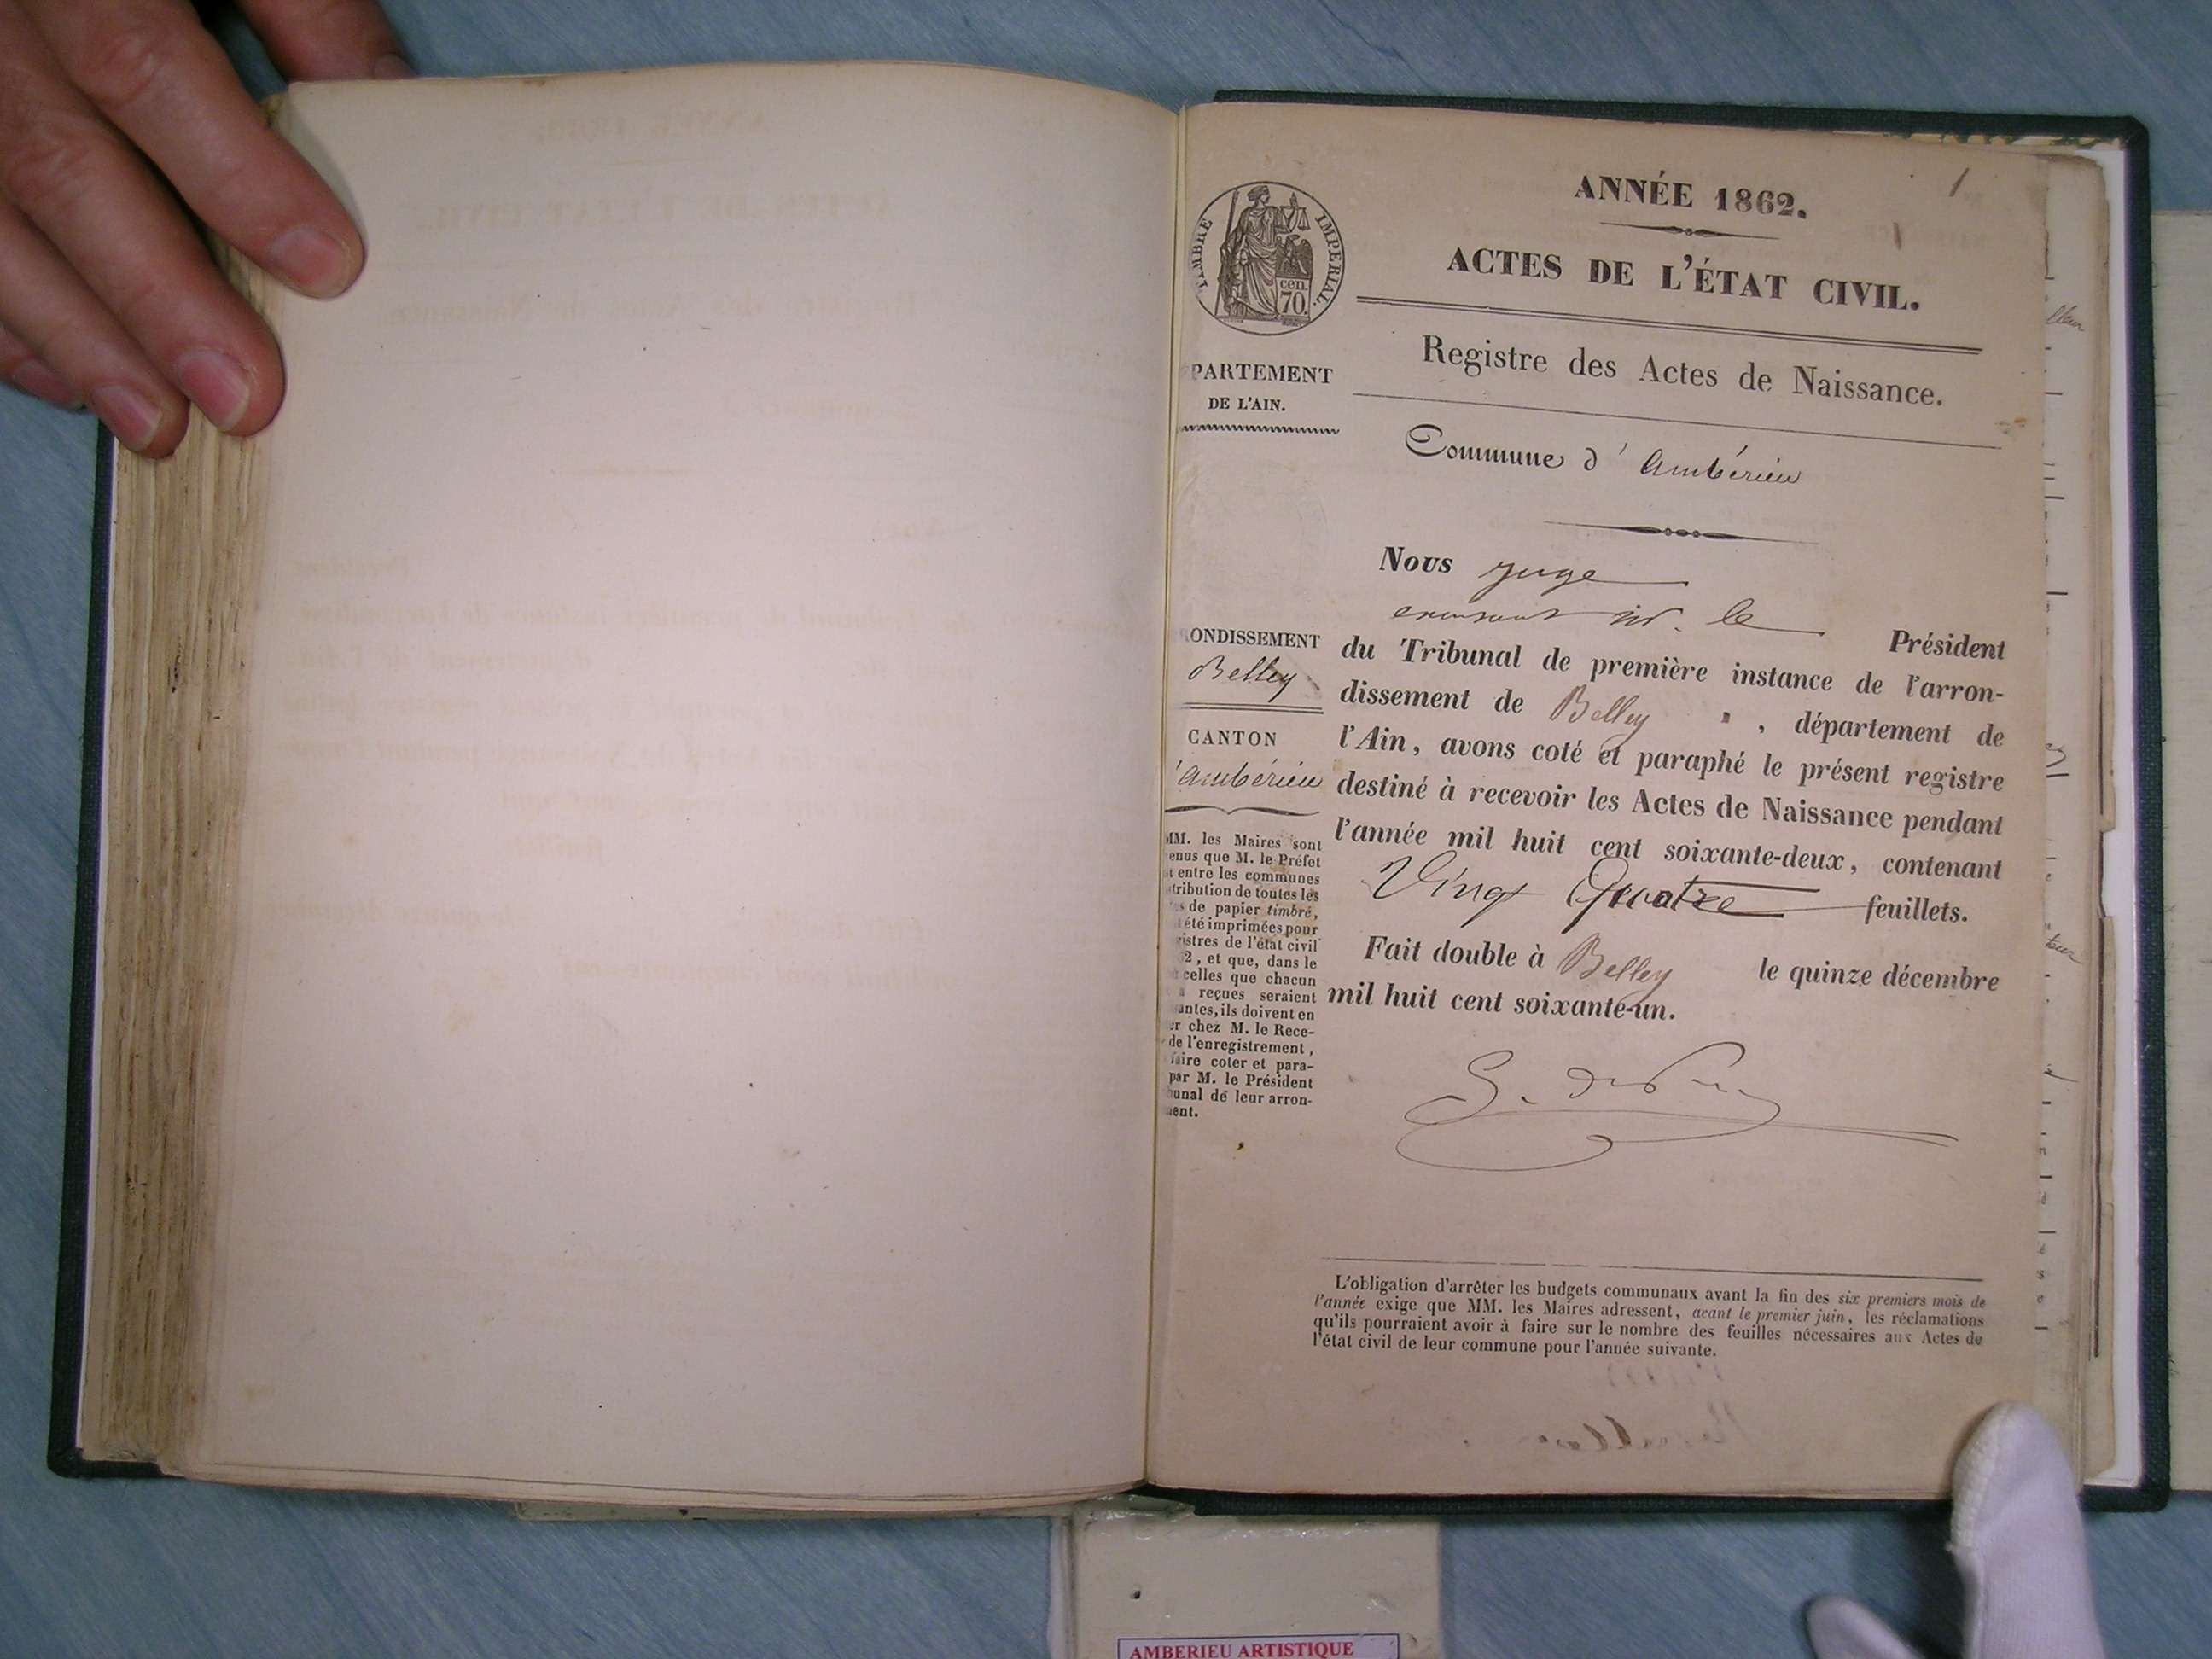 1
ANNÉE 1862.
1
ACTES DE L'ÉTAT CIVIL.
TIMBRE IMPERIAL.
cen.
70.
Registre des Actes de Naissance.
PARTEMENT
DE L'AIN.
Commune d'Ambérieu
Nous juge
le
Président
du Tribunal de première instance de l'arron-
dissement de Belley, département de
l'Ain, avons coté et paraphé le présent registre
destiné à recevoir les Actes de Naissance pendant
l'année mil huit cent soixante-deux, contenant
Vingt Quatre feuillets.
Fait double à Belley le quinze décembre
mil huit cent soixante-un.
ONDISSEMENT
Belley
CANTON
'Ambérieu
MM. les Maires sont
enus que M. le Préfet
t entre les communes
tribution de toutes les
s de papier timbré,
été imprimées pour
istres de l'état civil
2, et que, dans le
celles que chacun
reçues seraient
antes, ils doivent en
er chez M. le Rece-
de l'enregistrement,
faire coter et para-
par M. le Président
unal de leur arron-
ent.
L'obligation d'arrêter les budgets communaux avant la fin des six premiers mois de
l'année exige que MM. les Maires adressent, avant le premier juin, les réclamations
qu'ils pourraient avoir à faire sur le nombre des feuilles nécessaires aux Actes de
l'état civil de leur commune pour l'année suivante.
AMBERIEU ARTISTIQUE